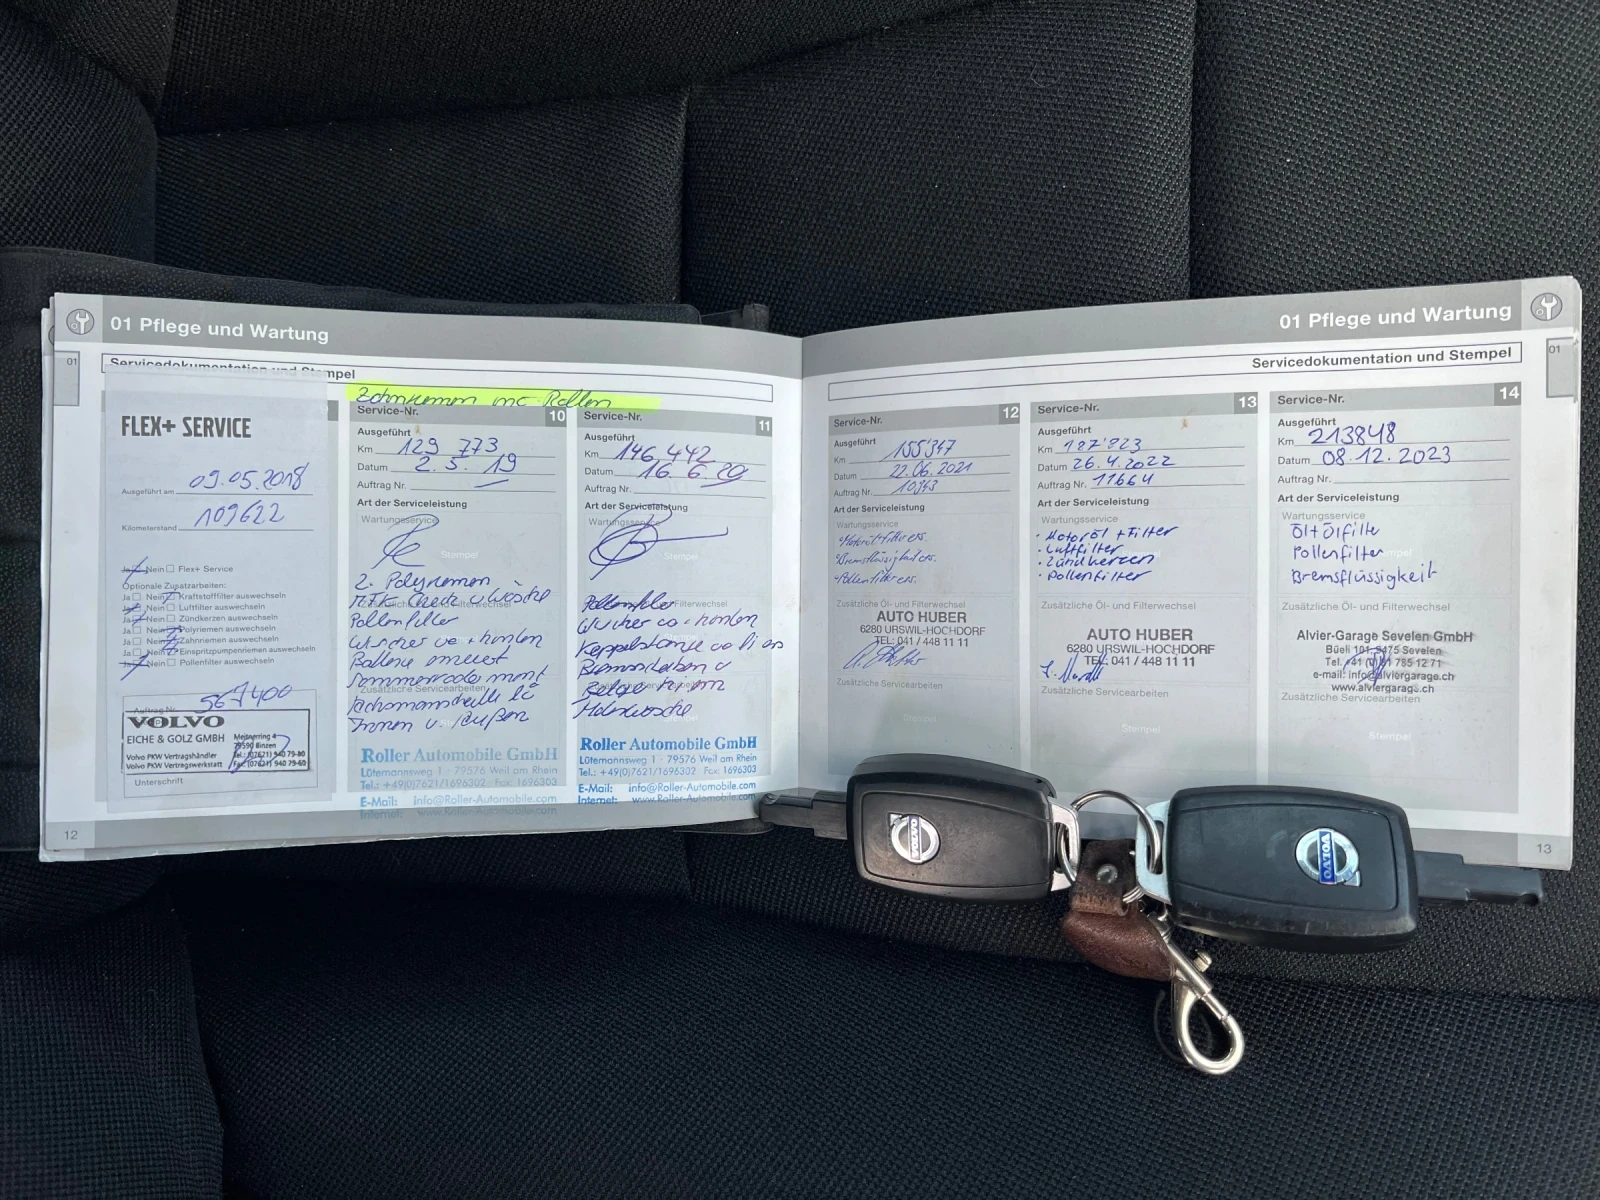 01 Pflege und Wartung
01
Servicedokumentation und Stempel
FLEX+ SERVICE
Ausgeführt am 09.05.2018
Kilometerstand 109622
Ja Nein Flex+ Service
Optionale Zusatzarbeiten:
Ja Nein Kraftstofffilter auswechseln
Ja Nein Luftfilter auswechseln
Ja Nein Zündkerzen auswechseln
Ja Nein Polyriemen auswechseln
Ja Nein Zahnriemen auswechseln
Ja Nein Einspritzpumpenriemen auswechseln
Ja Nein Pollenfilter auswechseln
Auftrag Nr.
VOLVO
EICHE & GOLZ GMBH
Volvo PKW Vertragshändler
Volvo PKW Vertragswerkstatt
Meitnerring 4
79590 Binzen
Tel.: (07621) 940 79-80
Fax: (07621) 940 79-60
Unterschrift
12
Zahnriemen inc Rollen
Service-Nr. 10
Ausgeführt
Km 129 773
Datum 2.5.19
Auftrag Nr.
Art der Serviceleistung
Wartungsservice
Stempel
2. Polyriemen
Pollenfilter
Wischer vo + hinten
Batterie erneuert
Zusätzliche Servicearbeiten
Innen u. Außen
Roller Automobile GmbH
Lütemannsweg 1 · 79576 Weil am Rhein
Tel.: +49(0)7621/1696302 Fax: 1696303
E-Mail: info@Roller-Automobile.com
Internet: www.Roller-Automobile.com
Service-Nr. 11
Ausgeführt
Km 146 442
Datum 16.6.20
Auftrag Nr.
Art der Serviceleistung
Wartungsservice
Stempel
Pollenfilter
Wischer vo + hinten
Bremsscheiben u
Roller Automobile GmbH
Lütemannsweg 1 · 79576 Weil am Rhein
Tel.: +49(0)7621/1696302 Fax: 1696303
E-Mail: info@Roller-Automobile.com
Internet: www.Roller-Automobile.com
01 Pflege und Wartung
01
Servicedokumentation und Stempel
Service-Nr. 12
Ausgeführt
Km 155'347
Datum 22.06.2021
Auftrag Nr. 10943
Art der Serviceleistung
Wartungsservice
Zusätzliche Öl- und Filterwechsel
AUTO HUBER
6280 URSWIL-HOCHDORF
TEL: 041 / 448 11 11
Zusätzliche Servicearbeiten
Stempel
Service-Nr. 13
Ausgeführt
Km 187'823
Datum 26.4.2022
Auftrag Nr. 11664
Art der Serviceleistung
Wartungsservice
· Motoröl + Filter
· Luftfilter
· Zündkerzen
· Pollenfilter
Zusätzliche Öl- und Filterwechsel
AUTO HUBER
6280 URSWIL-HOCHDORF
TEL: 041 / 448 11 11
Zusätzliche Servicearbeiten
Stempel
Service-Nr. 14
Ausgeführt
Km 213848
Datum 08.12.2023
Auftrag Nr.
Art der Serviceleistung
Wartungsservice
Öl + Ölfilter
Pollenfilter
Bremsflüssigkeit
Zusätzliche Öl- und Filterwechsel
Alvier-Garage Sevelen GmbH
Büeli 101, 9475 Sevelen
Tel. +41 (0)81 785 12 71
e-mail: info@alviergarage.ch
www.alviergarage.ch
Zusätzliche Servicearbeiten
Stempel
13
VOLVO
VOLVO